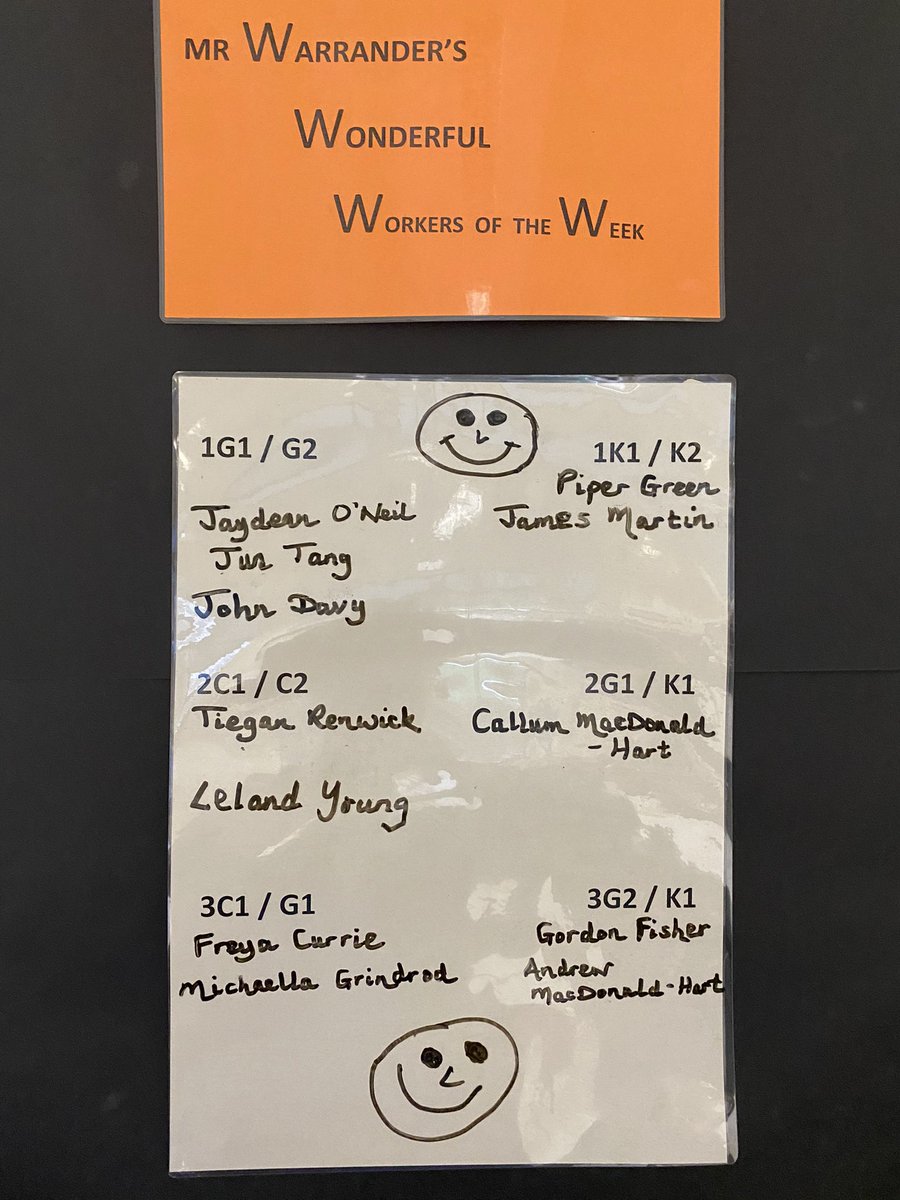 MR WARRANDER'S
WONDERFUL
WORKERS OF THE WEEK
1G1 / G2
Jaydean O'Neil
Jun Tang
John Davy
1K1 / K2
Piper Green
James Martin
2C1 / C2
Tiegan Renwick
Leland Young
2G1 / K1
Callum MacDonald
- Hart
3C1 / G1
Freya Currie
Michaella Grindrod
3G2 / K1
Gordon Fisher
Andrew
MacDonald-Hart